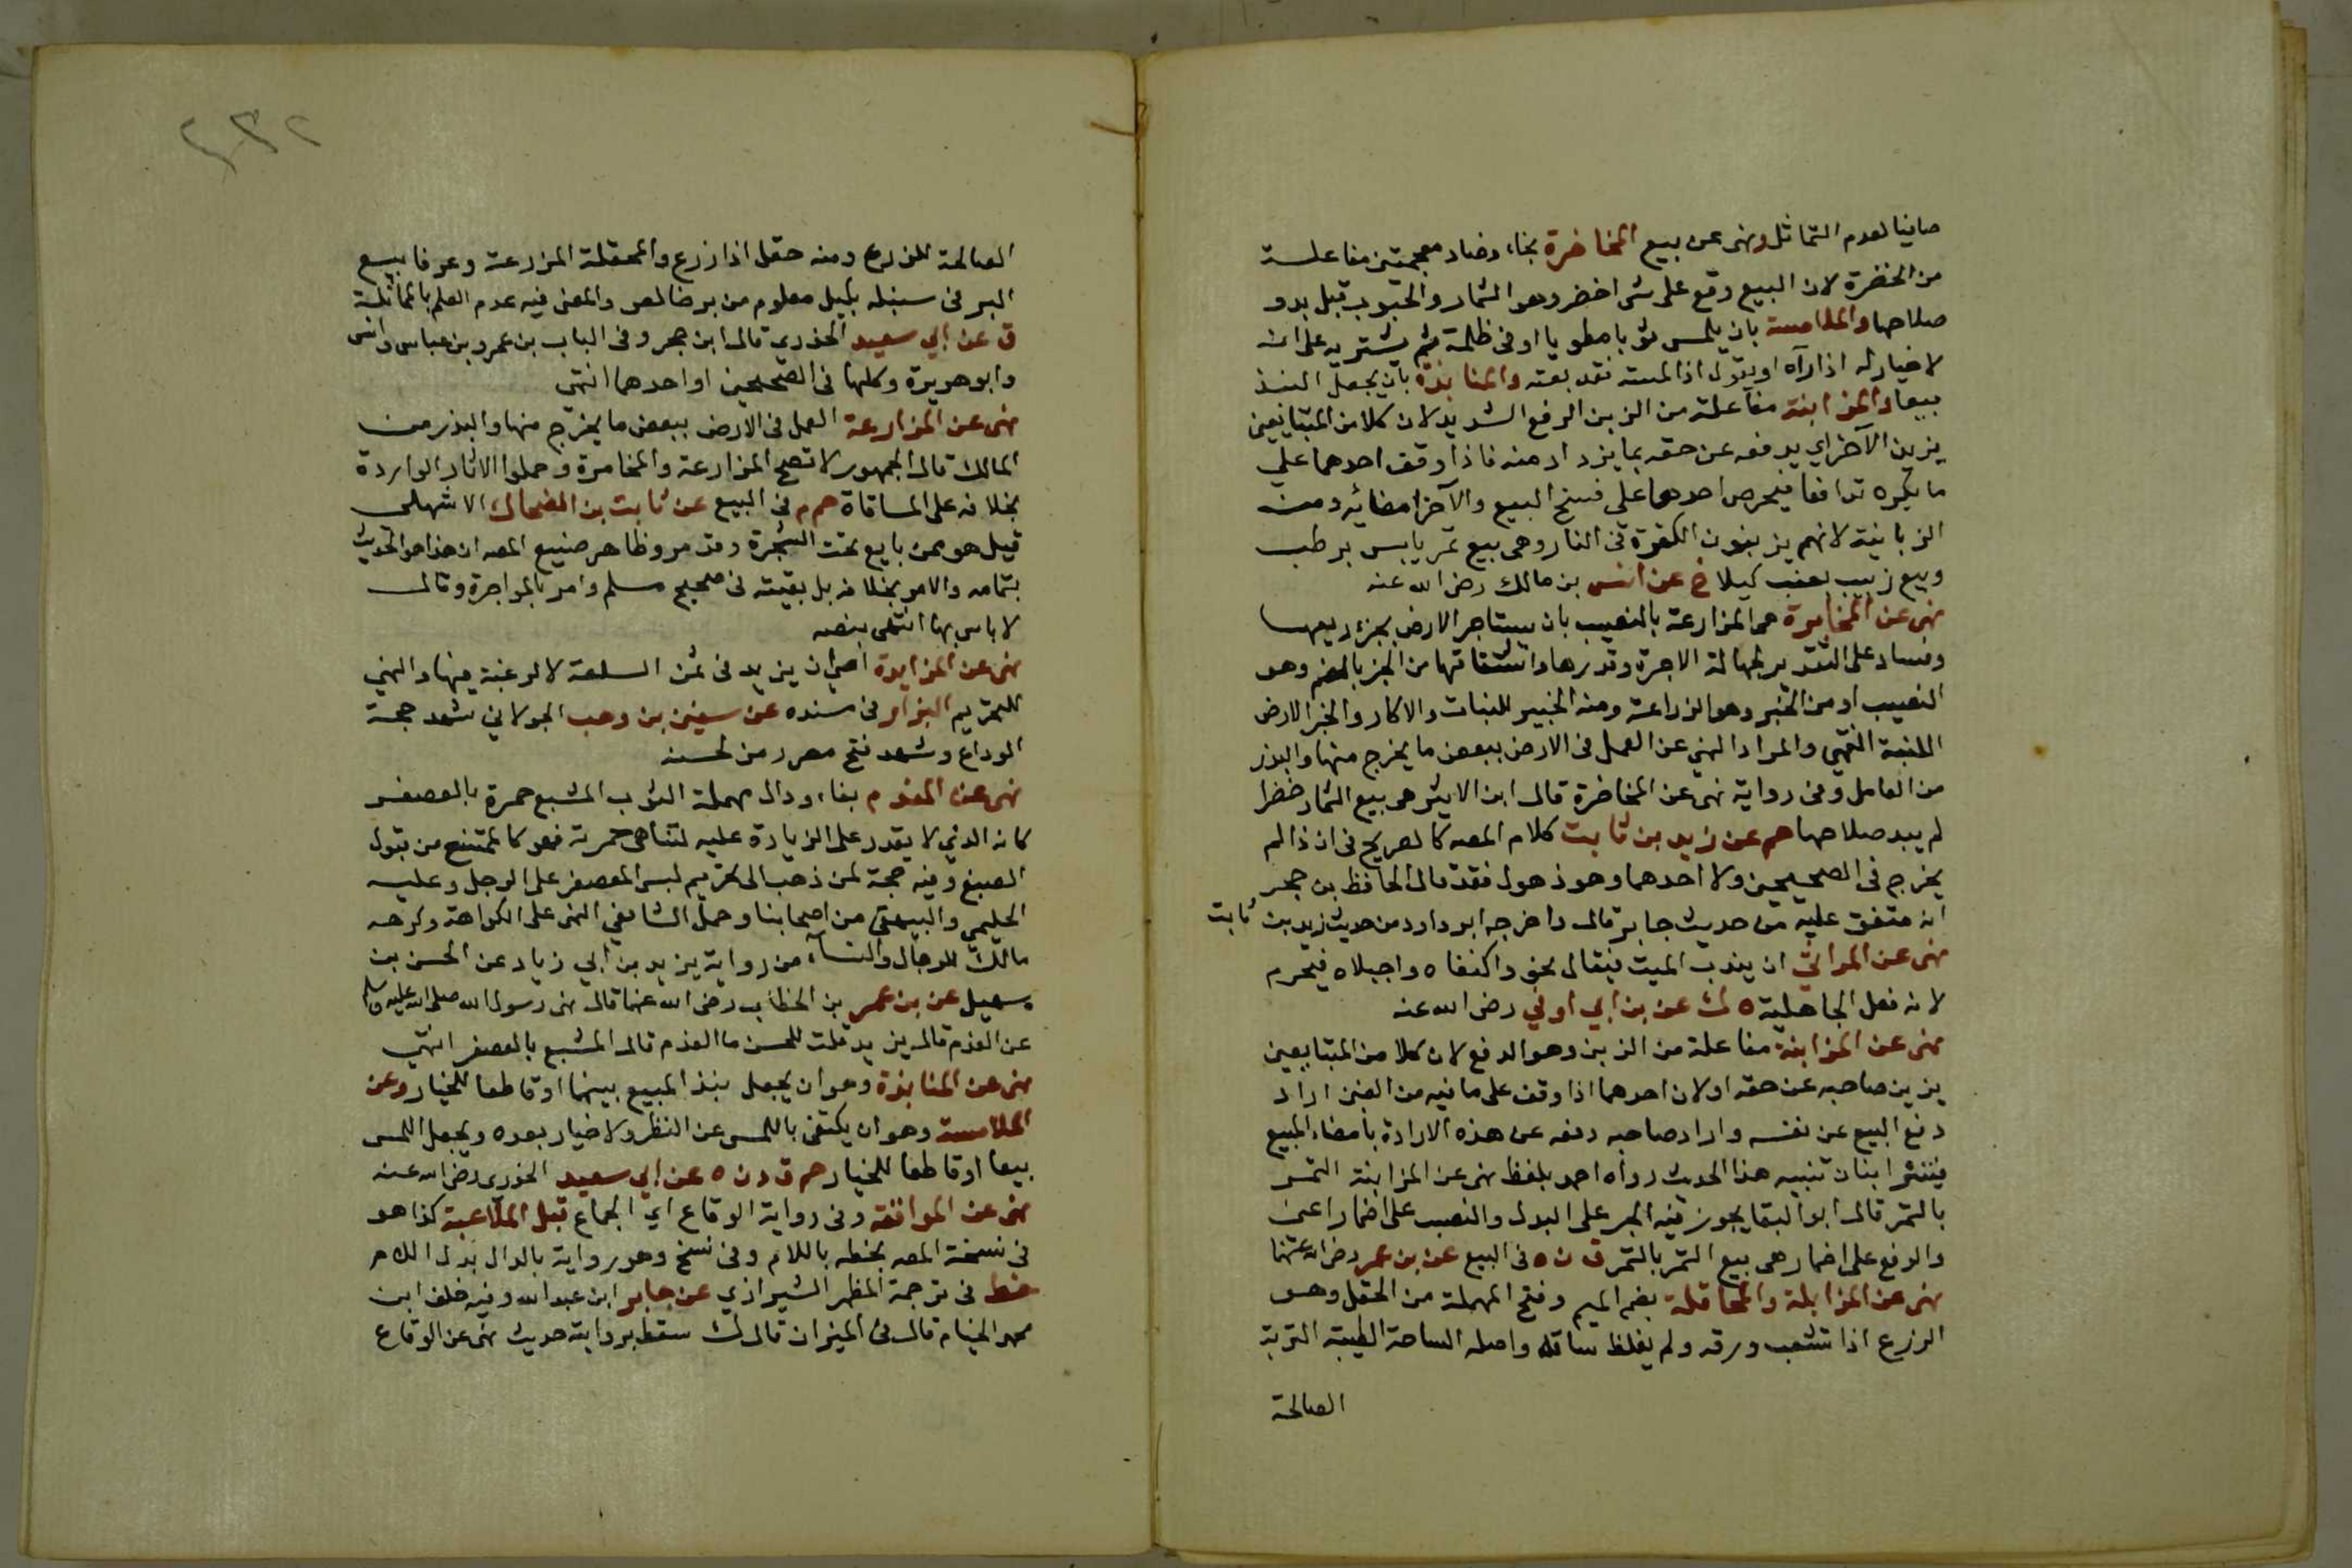 صافيا لعدم التماثل ونهى عن بيع المخاضرة بخاء وضاد معجمتين مفاعلة
من الخضرة لان البيع وقع على شى اخضر وهو الثمار والحبوب قبل بدو
صلاحها والملامسة بان يلمس ثوبا مطويا او فى ظلمة ثم يشتريه على انه
لا خيار له اذا رآه او يقول اذا لمسته فقد بعته والمنابذة بان يجعل النبذ
بيعا والمزابنة مفاعلة من الزبن الرفع الشديد لان كلا من المتبايعين
يزبن الآخر اي يدفعه عن حقه بما يزداد منه فاذا وقف احدهما على
ما يكره تدافعا فيحرص احدهما على فسخ البيع والآخر امضائه ومنه
الزبانية لانهم يزبنون الكفرة فى النار وهى بيع تمر يابس برطب
وبيع زبيب بعنب كيلا خ عن انس بن مالك رضى الله عنه
نهى عن المخابرة هى المزارعة بالنصيب بان يستاجر الارض بجزء ريعها
وفساد على التقدير لجهالة الاجرة وقدرها واشتقاقها من الخبر بالضم وهو
النصيب او من الخبر وهو الزراعة ومنه الخبير للنبات والاكار والخبر الارض
اللينة انتهى والمراد النهى عن العمل فى الارض ببعض ما يخرج منها والبذر
من العامل وفى رواية نهى عن المخاضرة قال ابن الاثير هى بيع الثمار خضرا
لم يبد صلاحها حم عن زيد بن ثابت كلام المصه كالصريح فى ان ذا لم
يخرج فى الصحيحين ولا احدهما وهو ذهول فقد قال الحافظ بن حجر
انه متفق عليه من حديث جابر قال واخرجه ابو داود من حديث زيد بن ثابت
نهى عن المراثى ان يندب الميت فيقال نحو واكنفاه واجبلاه فيحرم
لانه فعل الجاهلية ه ك عن بن ابي اوفى رضى الله عنه
نهى عن المزابنة مفاعلة من الزبن وهو الدفع لان كلا من المتبايعين
يزبن صاحبه عن حقه او لان احدهما اذا وقف على ما فيه من الغبن اراد
دفع البيع عن نفسه واراد صاحبه دفعه عن هذه الارادة بامضاء البيع
تنبيه هذا الحديث رواه احمد بلفظ نهى عن المزابنة التمر
بالتمر قال ابو البقا يجوز فيه الجر على البدل والنصب على اضمار اعنى
والرفع على اضمار هى بيع التمر بالتمر ق ن ه فى البيع عن بن عمر رضى الله عنهما
نهى عن المزابلة والمحاقلة بضم الميم وفتح المهملة من الحقل وهو
الزرع اذا تشعب ورقه ولم يغلظ ساقه واصله الساحة الطيبة التربة
الصالحة
٢٣٢
الصالحة للزرع ومنه حقل اذا زرع والمحقلة المزرعة وعرفا بيع
البر فى سنبله بكيل معلوم من بر خالص والمعنى فيه عدم العلم بالمماثلة
ق عن ابي سعيد الخدري قال ابن حجر وفى الباب بن عمر وبن عباس وانس
وابو هريرة وكلها فى الصحيحين او احدهما انتهى
نهى عن المزارعة العمل فى الارض ببعض ما يخرج منها والبذر من
المالك قال الجمهور لا تصح المزارعة والمخابرة وحملوا الاثار الواردة
بخلافه على المساقاة حم م فى البيع عن ثابت بن الضحاك الاشهلى
قيل هو ممن بايع تحت الشجرة وقد مر وظاهر صنيع المصه ان هذا هو الحديث
بتمامه والامر بخلافه بل بقيته فى صحيح مسلم وامر بالمواجرة وقال
لا باس بها انتهى بنصه
نهى عن المزايدة اى ان يزيد فى ثمن السلعة لا لرغبة فيها والنهي
للتحريم البزار فى مسنده عن سفين بن وهب الخولاني شهد حجة
الوداع وشهد فتح مصر رمز لحسنه
نهى عن المفدم بفاء ودال مهملة الثوب المشبع حمرة بالعصفر
كانه الذي لا يقدر على الزيادة عليه لتناهى حمرته فهو كالممتنع من قبول
الصبغ وفيه حجة لمن ذهب الى تحريم لبس المعصفر على الرجل وعليه
الحليمى والبيهقى من اصحابنا وحمل الشافعي النهى على الكراهة وكرهه
مالك للرجال والنسآء من رواية يزيد بن ابي زياد عن الحسن بن
سهيل عن بن عمر بن الخطاب رضى الله عنهما قال نهى رسول الله صلى الله عليه وسلم
عن الفدم قال يزيد قلت للحسن ما الفدم قال المشبع بالعصفر انتهى
نهى عن المنابذة وهو ان يجعل بنذ المبيع بينهما او قاطعا للخيار وعن
الملامسة وهو ان يكتفى باللمس عن النظر ولا خيار بعده ويجعل اللمس
بيعا او قاطعا للخيار حم ق د ن ه عن ابي سعيد الخدري رضى الله عنه
نهى عن المواقعة وفى رواية الوقاع اي الجماع قبل الملاعبة كذا هو
فى نسخة المصه بخطه باللام وفى نسخ وهو رواية بالدال بدل اللام
خط فى ترجمة المظهر الشيرازي عن جابر ابن عبد الله وفيه خلف ابن
محمد الخيام قال فى الميزان قال ك سقط برواية حديث نهى عن الوقاع